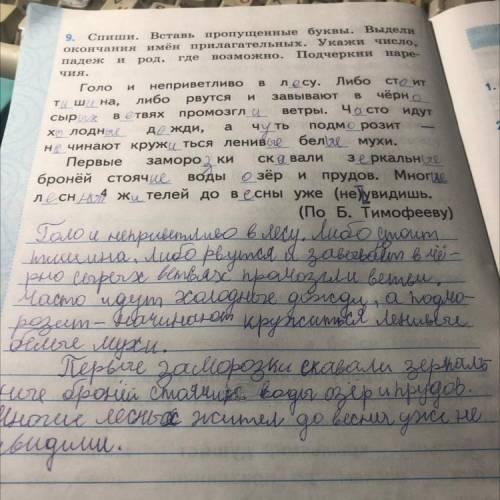 9. Спиши. Вставь пропущенные буквы. Выдели
окончания имён прилагательных. Укажи число,
падеж и род, где возможно. Подчеркни наре-
чия.
Голо и неприветливо в лесу. Либо стоит
тишина, либо рвутся и завывают в чёрно
сырых ветвях промозгли ветры. Часто идут
холодные дожди, а чуть подморозит —
начинают кружиться ленивые белые мухи.
Первые заморозки сковали зеркальные
бронёй стоячие воды озёр и прудов. Многие
лесных4 жителей до весны уже (не)увидишь.
(По Б. Тимофееву)
1.
Голо и неприветливо в лесу. Либо стоит
тишина, либо рвутся и завывают в чё-
рно сырых ветвях промозгли ветви.
Часто идут холодные дожди, а подмо-
розит – начинают кружиться ленивые
белые мухи.
Первые заморозки скавали зеркаль
ные бронёй стоячие воды озёр и прудов.
Многие лесных жител до весны уже не
видими.